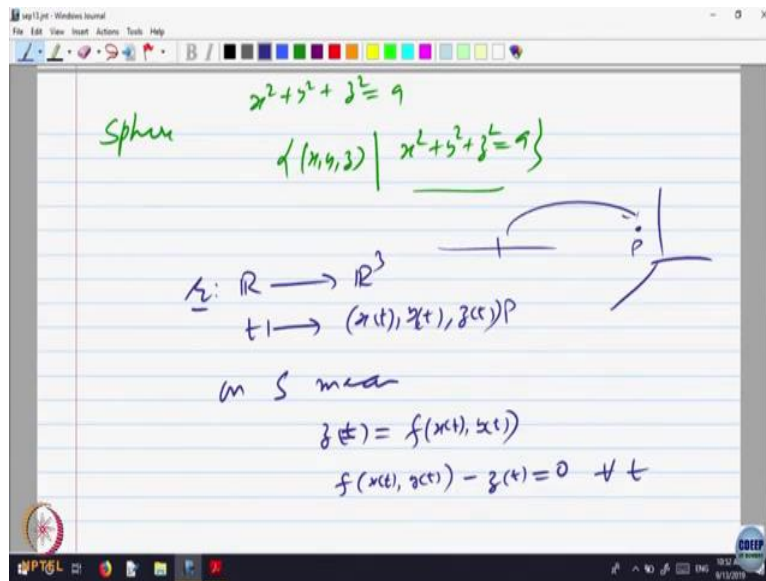 sep13.jnt - Windows Journal
File Edit View Insert Actions Tools Help
B I
x² + y² + z² = 9
Sphere
{(x, y, z) | x² + y² + z² = 9}
P
r: ℝ → ℝ³
t ↦ (x(t), y(t), z(t)) P
on S mean
z(t) = f(x(t), y(t))
f(x(t), y(t)) - z(t) = 0 ∀ t
NPTEL
CDEEP
ENG
9/13/2019